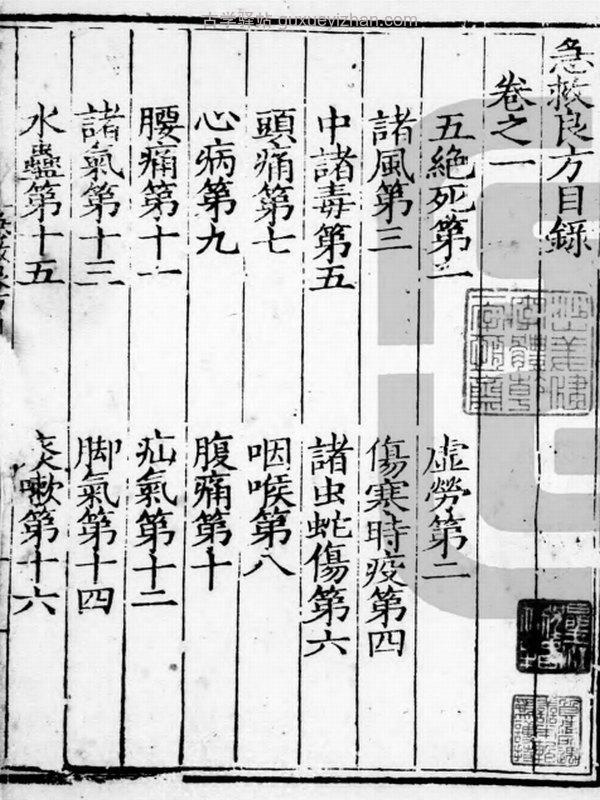 古学驿站 guxueyizhan.com
急救良方目錄
卷之一
五絶死第一 虛勞第二
諸風第三 傷寒時疫第四
中諸毒第五 諸虫蛇傷第六
頭痛第七 咽喉第八
心病第九 腹痛第十
腰痛第十一 疝氣第十二
諸氣第十三 脚氣第十四
水蠱第十五 嗽第十六